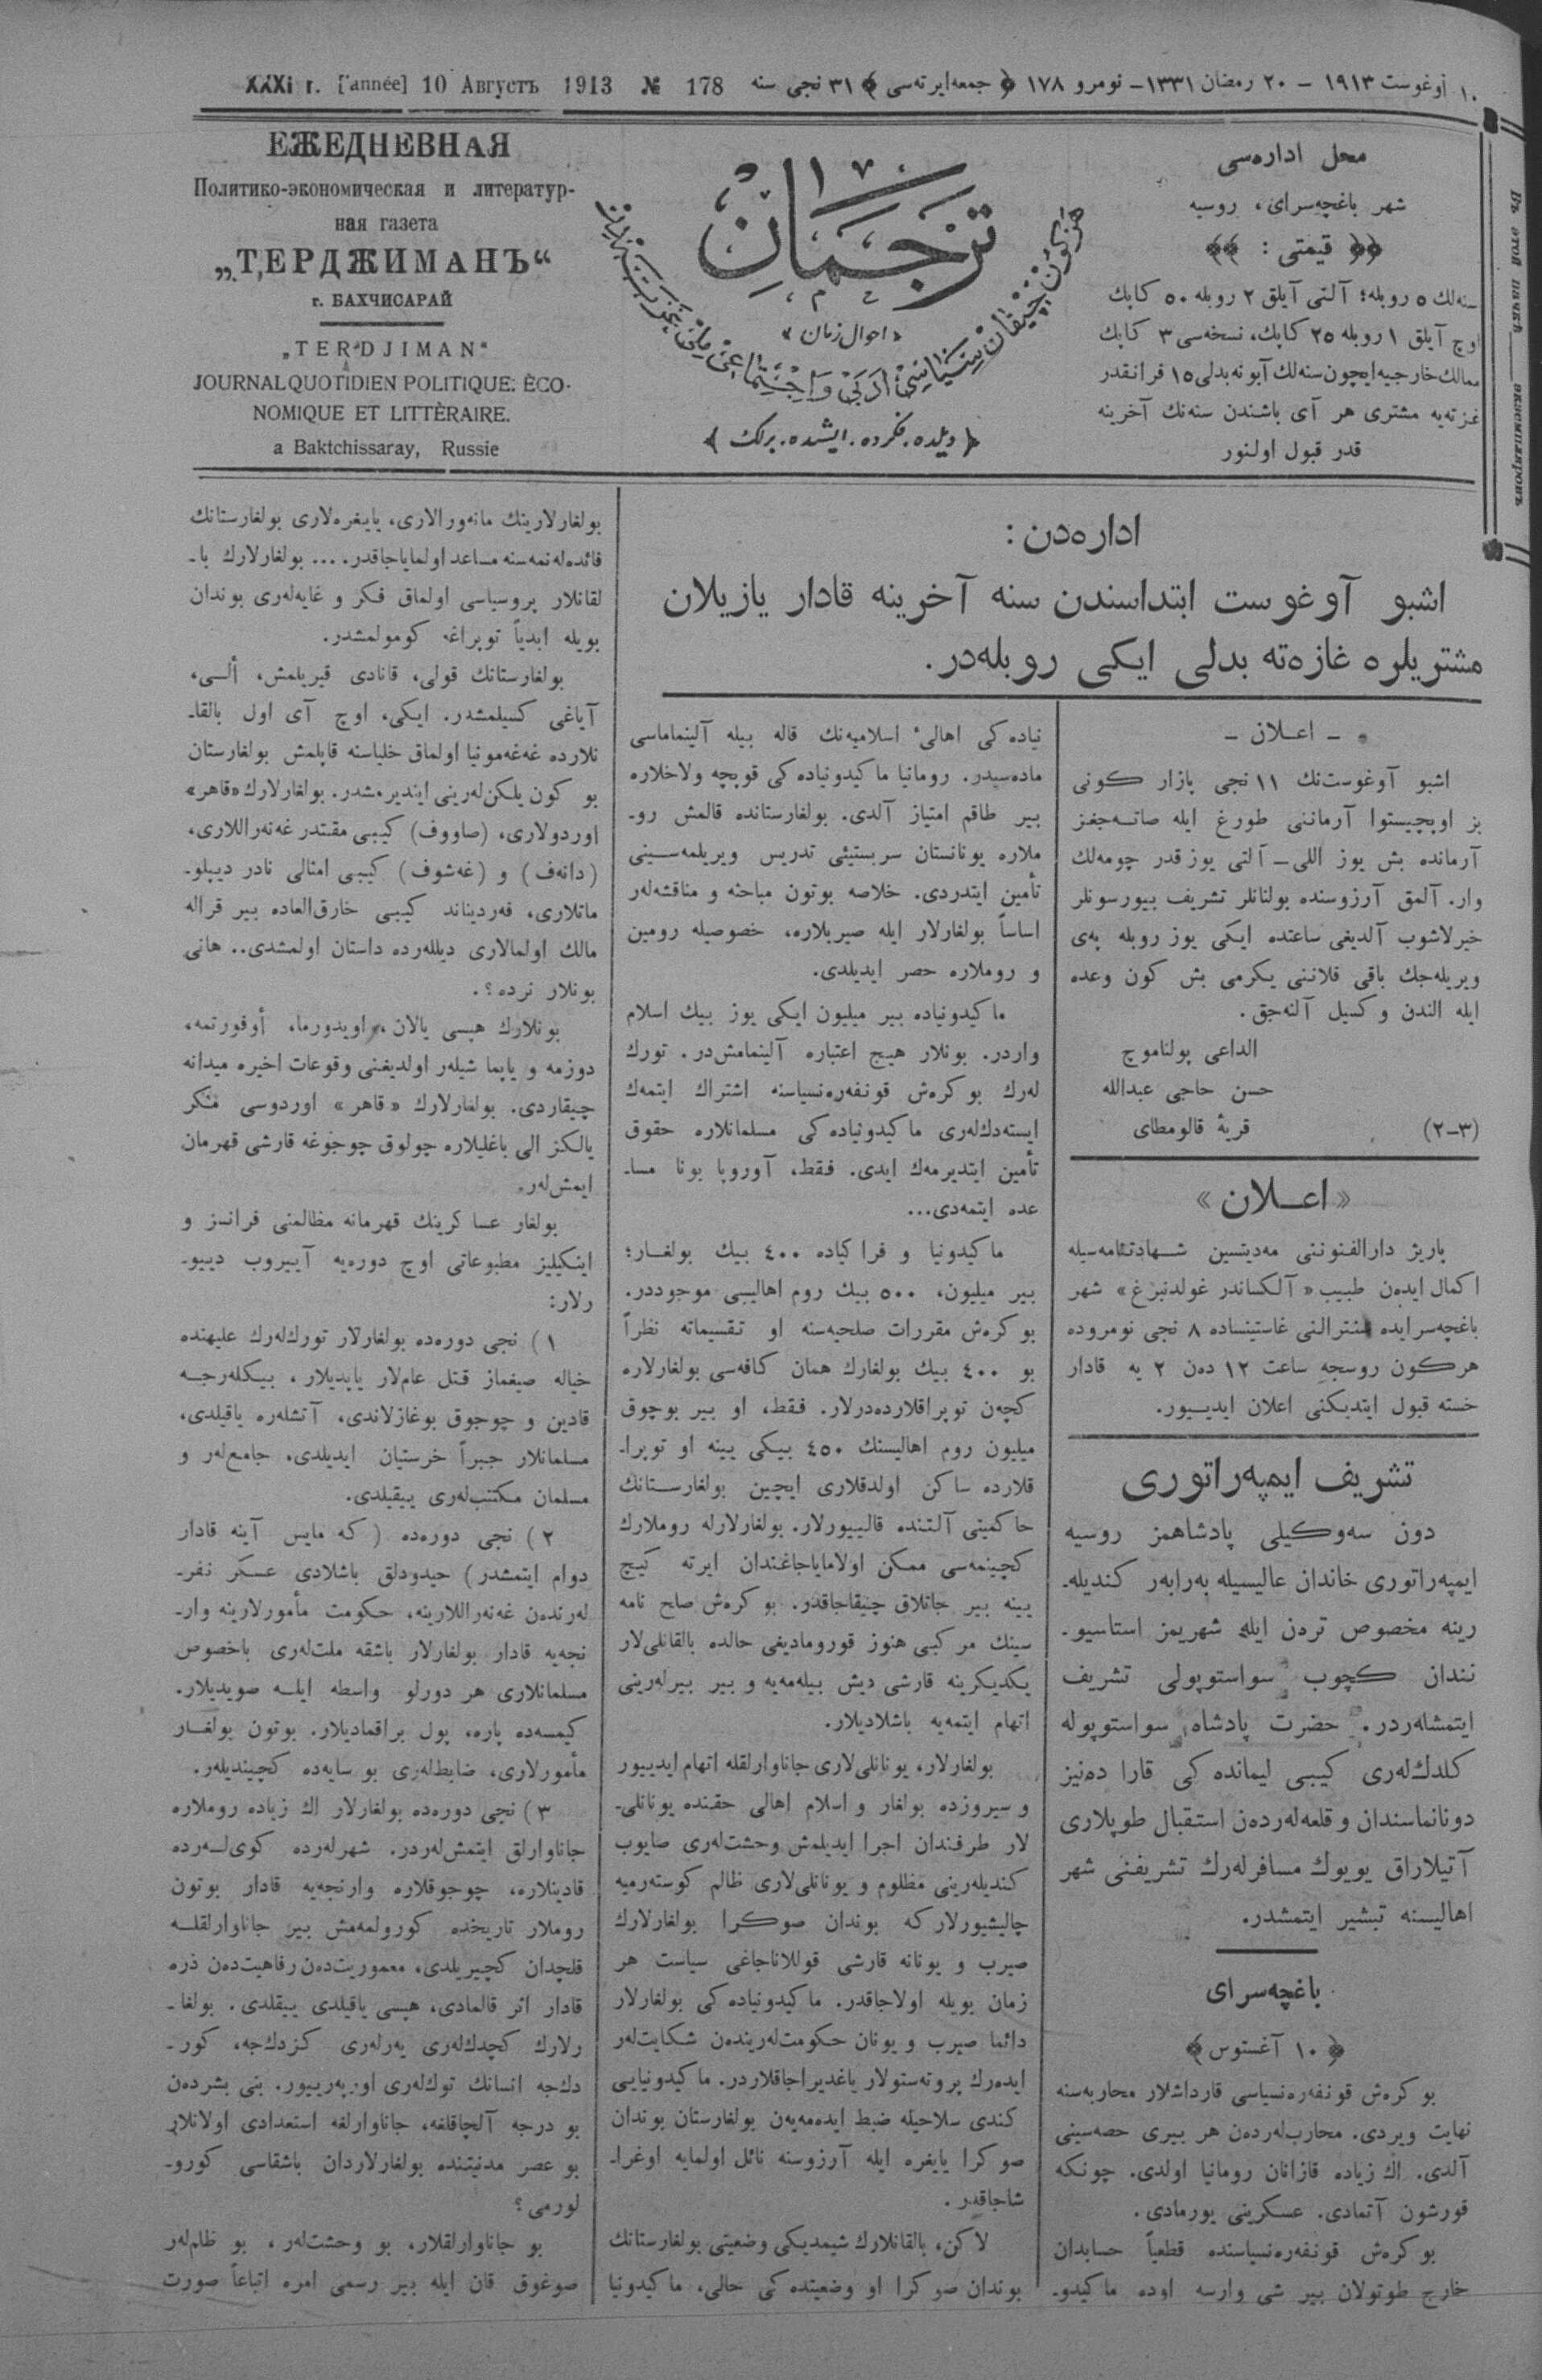 XXXI г. [année] 10 Августъ 1913 № 178
١٠ اوغوست ١٩١٣ – ٢٠ رمضان ١٣٣١– نومرو ١٧٨ ﴿ جمعه‌ایرته‌سی ﴾ ٣١ نجی سنه
ЕЖЕДНЕВНАЯ
Политико-экономическая и литератур-
ная газета
„ТЕРДЖИМАНЪ“
г. БАХЧИСАРАЙ
„TERDJIMAN“
JOURNAL QUOTIDIEN POLITIQUE: ÈCO-
NOMIQUE ET LITTÈRAIRE.
a Baktchissaray, Russie
ترجمان
« احوال زمان »
هر كون چیقان سیاسی ادبی و اجتماعی ملی غزته‌در
﴿ دیلده. فكرده. ایشده. برلك ﴾
محل اداره‌سی
شهر باغچه‌سرای، روسیه
﴿﴿ قیمتی : ﴾﴾
سنه‌لك ٥ روبله؛ آلتی آیلق ٢ روبله ٥٠ كاپك
اوچ آیلق ١ روبله ٢٥ كاپك، نسخه‌سی ٣ كاپك
ممالك خارجیه‌ایچون سنه‌لك آبونه بدلی ١٥ فرانقدر
غزته‌یه مشتری هر آی باشندن سنه‌نك آخرینه
قدر قبول اولنور
Въ этой пачкѣ ___ экземпляровъ
اداره‌دن :
اشبو آوغوست ابتداسندن سنه آخرینه قادار یازیلان
مشتریلره غازه‌ته بدلی ایكی روبله‌در.
– اعـلان –
اشبو آوغوست‌نك ١١ نجی پازار كونی
بز اوپچیستوا آرماننی طورغ ایله صاتـه‌جغز
آرمانده بش یوز اللی – آلتی یوز قدر چومه‌لك
وار. آلمق آرزوسنده بولنانلر تشریف بیورسونلر
خبرلاشوب آلدیغی ساعتده ایكی یوز روبله پەی
ویریله‌جك باقی قلاننی یكرمی بش كون وعده
ایله الندن وكسیل آلنه‌جق.
الداعی پولناموچ
حسن حاجی عبدالله
قریهٔ قالومطای
(٣-٢)
« اعـلان »
پاریژ دارالفنوننی مه‌دیتسین شـهادتنامه‌سیله
اكمال ایده‌ن طبیب « آلكساندر غولدنبرغ » شهر
باغچه‌سرایده سنترالنی غاستینساده ٨ نجی نومروده
هركون روسجه ساعت ١٢ ده‌ن ٢ یه قادار
خسته قبول ایتدیكنی اعلان ایدیـیور.
تشریف ایمپه‌راتوری
دون سه‌وكیلی پادشاهمز روسیه
ایمپه‌راتوری خاندان عالیسیله به‌رابه‌ر كندیله‌ـ
رینه مخصوص تره‌ن ایله شهریمز استاسیوـ
نندان كچوب سواستوپولی تشریف
ایتمشله‌ردر. حضرت پادشاه سواستوپوله
كلدك‌له‌ری كیبی لیمانده كی قارا ده‌نیز
دونانماسندان و قلعه‌له‌رده‌ن استقبال طوپلاری
آتیلاراق بویوك مسافرله‌رك تشریفنی شهر
اهالیسنه تبشیر ایتمشدر.
باغچه‌سرای
﴿ ١٠ آغستوس ﴾
بوكره‌ش قونفه‌ره‌نسیاسی قارداشلار محاربه‌سنه
نهایت ویردی. محارب‌له‌رده‌ن هر بیری حصه‌سینی
آلدی. اك زیاده قازانان رومانیا اولدی. چونكه
قورشون آتمادی. عسكرینی یورمادی.
بوكره‌ش قونفه‌ره‌نسیاسنده قطعیاً حسابدان
خارج طوتولان بیر شی وارسه اوده ماكیدوـ
نیاده كی اهالیٔ اسلامیه‌نك قاله بیله آلینماماسی
ماده‌سیدر. رومانیا ماكیدونیاده كی قوپچه ولاخلاره
بیر طاقم امتیاز آلدی. بولغارستانده قالمش روـ
ملاره یونانستان سربستیئی تدریس ویریلمه‌سـینی
تأمین ایتدردی. خلاصه بوتون مباحثه و مناقشه‌لەر
اساساً بولغارلار ایله صیربلاره، خصوصیله رومین
و روملاره حصر ایدیلدی.
ماكیدونیاده بیر میلیون ایكی یوز بیك اسلام
واردر. بونلار هیچ اعتباره آلینمامش‌در. تورك
له‌رك بوكره‌ش قونفه‌ره‌نسیاسنه اشتراك ایتمه‌ك
ایسته‌دك‌له‌ری ماكیدونیاده كی مسلمانلاره حقوق
تأمین ایتدیرمه‌ك ایدی. فـقط، آوروپا بونا مساـ
عده ایتمه‌دی...
ماكیدونیا و فراكیاده ٤٠٠ بیك بولغـار؛
بیر میلیون، ٥٠٠ بیك روم اهالیسی موجوددر.
بوكره‌ش مقررات صلحیه‌سنه او تـقسیماته نظراً
بو ٤٠٠ بیك بولغارك همان كافه‌سی بولغارلاره
كچه‌ن توپراقلارده‌درلار. فـقط، او بیر بوچوق
میلیون روم اهالیسنك ٤٥٠ بیكی یینه او توپراـ
قلارده ساكن اولدقلاری ایچین بولغارستانك
حاكمیتی آلتنده قالییورلار. بولغارلارله روملارك
كچینمه‌سی ممكن اولامایاجاغندان ایرته كیچ
یینه بیر جاتلاق چیقاجاقدر. بوكره‌ش صلح نامه
سینك مركبی هنوز قورومادیغی حالده بالقانلی‌لار
یكدیكرینه قارشی دیش بیله‌مه‌یه و بیر بیرله‌رینی
اتهام ایتمه‌یه باشلادیلار.
بولغارلار، یونانلی‌لاری جاناوارلقله اتهام ایدییور
و سیروزده بولغار و اسلام اهالی حقنده یونانلی‌ـ
لار طرفندان اجرا ایدیلمش وحشت‌له‌ری صایوب
كندیله‌رینی مظلوم و یونانلی‌لاری ظالم كوسته‌رمیه
چالیشیورلاركه بوندان صوكرا بولغارلارك
صیرب و یونانه قارشی قوللاناجاغی سیاست هر
زمان بویله اولاجاقدر. ماكیدونیاده كی بولغارلار
دائما صیرب و یونان حكومت‌له‌رینده‌ن شكایت‌لەر
ایده‌رك پروته‌ستولار یاغدیراجاقلاردر. ماكیدونیایی
كندی سلاحیله ضبط ایده‌مه‌یه‌ن بولغارستان بوندان
صوكرا یایغره ایله آرزوسنه نائل اولمایه اوغراـ
شاجاقدر.
لاكن، بالقانلارك شیمدیكی وضعیتی بولغارستانك
بوندان صوكرا او وضعیتده كی حالی، ماكیدونیا
بولغارلارینك مانه‌ورالاری، یایغره‌لاری بولغارستانك
فائده‌له‌نمه‌سنه مساعد اولمایاجاقدر. ... بولغارلارك باـ
لقانلار پروسیاسی اولماق فكر و غایه‌له‌ری بوندان
بویله ابدیاً توپراغه كومولمشدر.
بولغارستانك قولی، قانادی قیریلمش، ألـی،
آیاغی كسیلمشدر. ایكی، اوچ آی اول بالقاـ
نلارده غه‌غه‌مونیا اولماق خلیاسنه قاپلمش بولغارستان
بو كون یلكن‌له‌رینی ایندیرمشدر. بولغارلارك «قاهر»
اوردولاری، (صاووف) كیبی مقتدر غه‌نه‌راللاری،
(دانه‌ف) و (غه‌شوف) كیبی امثالی نادر دیپلوـ
ماتلاری، فه‌ردیناند كیبی خارق‌العاده بیر قراله
مالك اولمالاری دیلله‌رده داستان اولمشدی.. هانی
بونلار نرده؟.
بونلارك هپسی یالان، اویدورما، أوفورتمه،
دوزمه و یاپما شیلەر اولدیغنی وقوعات اخیره میدانه
چیقاردی. بولغارلارك «قاهر» اوردوسی مگر
یالكز الی باغلیلاره چولوق چوجوغه قارشی قهرمان
ایمش‌له‌ر.
بولغار عساكرینك قهرمانه مظالمنی فرانسز و
اینكیلیز مطبوعاتی اوچ دوره‌یه آییروب دییوـ
رلار:
١) نجی دوره‌ده بولغارلار تورك‌له‌رك علیهنده
خیاله صیغماز قتل عام‌لار یاپدیلار، بیكله‌رجـه
قادین و چوجوق بوغازلاندی، آتشله‌ره یاقیلدی،
مسلمانلار جبراً خرستیان ایدیلدی، جامع‌له‌ر و
مسلمان مكتب‌له‌ری ییقیلدی.
٢) نجی دوره‌ده (كه مایس آینه قادار
دوام ایتمشدر) حیدودلق باشلادی عسكر نفرـ
له‌رنده‌ن غه‌نه‌راللارینه، حكومت مأمورلارینه وارـ
نجه‌یه قادار بولغارلار باشقه ملت‌له‌ری باخصوص
مسلمانلاری هر دورلو واسطه ایلـه صویدیلار.
كیمسه‌ده پاره، پول براقمادیلار. بوتون بولغـار
مأمورلاری، ضابط‌له‌ری بو سایه‌ده كچیندیله‌ر.
٣) نجی دوره‌ده بولغارلار اك زیاده روملاره
جاناوارلق ایتمش‌له‌ردر. شهرله‌رده كوی‌لـه‌رده
قادینلاره، چوجوقلاره وارنجه‌یه قادار بوتون
روملار تاریخده كورولمه‌مش بیر جاناوارلقلـه
قلجدان كچیریلدی، معموریت‌ده‌ن رفاهیت‌ده‌ن ذره
قادار اثر قالمادی، هپسی یاقیلدی ییقلدی. بولغاـ
رلارك كچدك‌له‌ری یه‌رله‌ری كزدكجه، كورـ
دكجه انسانك توك‌له‌ری اورپه‌رییور. بنی بشرده‌ن
بو درجه آلچاقلغه، جاناوارلغه استعدادی اولانلار
بو عصر مدنیتنده بولغارلاردان باشقاسی كوروـ
لورمی؟
بو جاناوارلقلار، بو وحشت‌له‌ر، بو ظلم‌له‌ر
صوغوق قان ایله بیر رسمی امره اتباعاً صورت